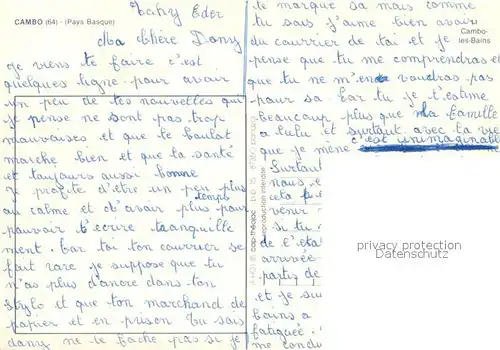 CAMBO (64) - (Pays Basque)
Eder
Ma chère Dany
je viens te faire c'est
quelques ligne pour avoir
un peu de tes nouvelles qui
je pense ne sont pas trop
mauvaises et que le boulot
marche bien et que la santé
et toujours aussi bonne
je profite d'être un peu plus
au calme et d'avoir plus temps pour
pouvoir t'ecrire tranquille
ment. Car toi ton courrier se
fait rare je suppose que tu
n'as plus d'ancre dans ton
stylo et que ton marchand de
papier et en prison tu sais
dany ne te fache pas si je
te marque sa mais comme
tu sais j'aime bien avoir
du courrier de toi et je
pense que tu me comprendras et
que tu ne m'en voudras pas
pour sa Car tu je t'estime
beaucoup plus que ma famille
a lulu et surtout avec la vie
que je mène c'est inimaginable
Cambo-
les-Bains
Surtout
nous e
cela f
venir
si tu
de l'éta
arrivée
partis de
et je su
bains a
fatiguée
me condu
reproduction interdite
privacy protection
Datenschutz